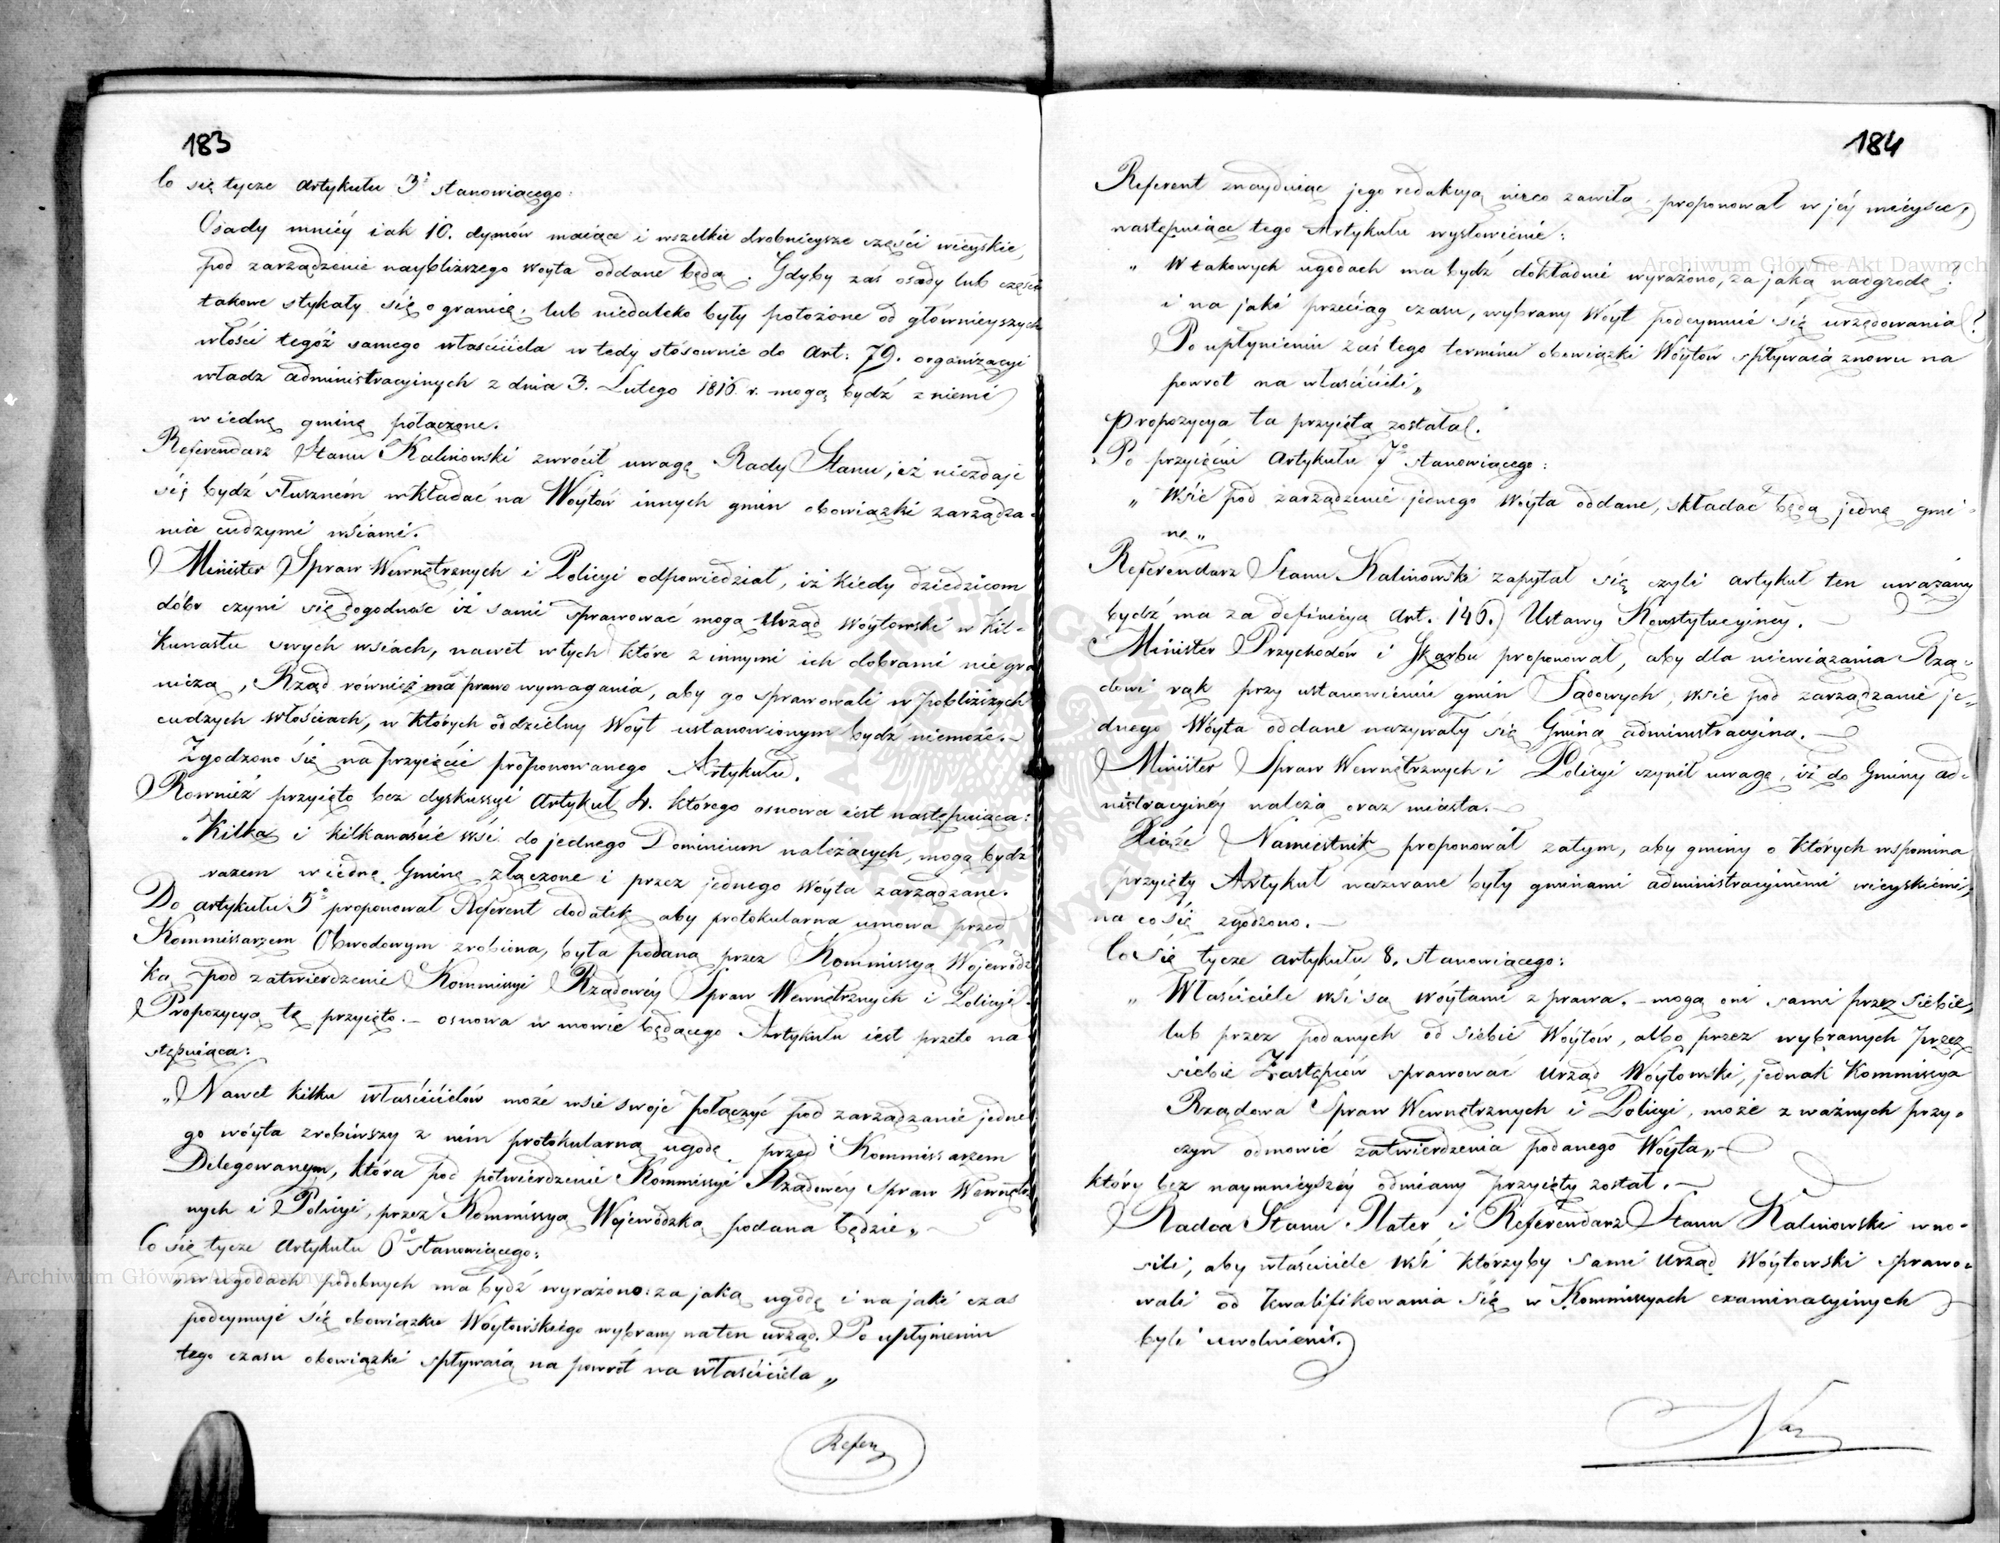 183
Co się tycze artykułu 3º stanowiącego:
Osady mniéy iak 10. dymów maiące i wszelkie drobnieysze części wieyskie,
pod zarządzenie naybliższego woyta oddane będą. Gdyby zaś osady lub części
takowe stykały się o granicę, lub niedaleko były położone od główneyszych
włości tegóż samego właściciela w tedy stósownie do art: 79. organizacyi
władz administracyinych z dnia 3. Lutego 1816 r. mogą bydź z niemi
w iednę gminę połączone.
Referendarz Stanu Kalinowski zwrócił uwagę Rady Stanu, iż niezdaje
się bydź słuszném wkładać na Wóytów innych gmin obowiązki zarządza-
nia cudzymi wsiami.
Minister Spraw Wewnętrznych i Policyi odpowiedział, iż kiedy dziedzicom
dóbr czyni się dogodność iż sami sprawować mogą Urząd Woytowski w kil-
kunastu swych wsiach, nawet w tych które z innymi ich dobrami nie gra
niczą, Rząd również ma prawo wymagania, aby go sprawowali w pobliższych
cudzych włościach, w których oddzielny Woyt ustanowionym bydź niemoże.
Zgodzono się na przyięcie proponowanego Artykułu.
Rownież przyięto bez dyskussyi artykuł 4. którego osnowa iest następuiąca:
„Kilka i kilkanaście wsi do jednego Dominium należących, mogą bydź
razem w iednę Gminę złączone i przez jednego Wóyta zarządzane.
Do artykułu 5º proponował Referent dodatek, aby protokularna umowa przed
Kommissarzem Obwodowym zrobiona, była podana przez Kommissyą Wojewódz
ką pod zatwierdzenie Kommissyi Rządowéy Spraw Wewnętrznych i Policyi.
Propozycyą tę przyięto. – osnowa w mowie będącego Artykułu iest przeto na
stępuiąca:
„Nawet kilku właścicielów może wsie swoje połączyć pod zarządzanie jedne
go wóyta zrobiwszy z nim protokularną ugodę przed Kommissarzem
Delegowanym, która pod potwierdzenie Kommissyi Rządowéy Spraw Wewnętrz
nych i Policyi, przez Kommissyą Wojewódzką podana będzie„
Co się tycze artykułu 6º stanowiącego:
„w ugodach podobnych ma bydź wyrażono: za jaką ugodę i na jaki czas
podeymuje się obowiązku Woytowskiego wybrany na ten urząd. Po upłynieniu
tego czasu obowiązki spływaią na powrót na właściciela„
Referen
184
Referent znayduiąc jego redakcyą nieco zawiłą, proponował w jéy mieysce,
następuiące tego Artykułu wysłowienie:
„W takowych ugodach ma bydź dokładnie wyrażono, za jaką nadgrodę?
i na jaki przeciąg czasu, wybrany Wóyt podeymuie się urzędowania?
Po upłynieniu zaś tego terminu obowiązki Wóytów spływaią znowu na
powrót na właścicieli„
Propozycya ta przyięta została.
Po przyięciu artykułu 7º stanowiącego:
„Wsie pod zarządzenie jednego wóyta oddane, składać będą jednę gmi-
nę„
Referendarz Stanu Kalinowski zapytał się czyli artykuł ten uważany
bydź ma za definicyą Art. 146.) Ustawy Konstytucyiney.
Minister Przychodów i Skarbu proponował, aby dla niewiązania Rzą-
dowi rąk przy ustanowieniu gmin Sądowych, wsie pod zarządzanie je-
dnego Wóyta oddane nazywały się Gminą administracyina.
Minister Spraw Wewnętrznych i Policyi czynił uwagę, iż do Gminy ad-
nistracyinéy należą oraz miasta.
Xiąże Namiestnik proponował zatym, aby gminy o których wspomina
przyięty Artykuł nazwane były gminami administracyinemi wieyskiemi,
na co się zgodzono.
Co się tycze artykułu 8. stanowiącego:
„Właściciele wsi są wóytami z prawa. – mogą oni sami przez siebie,
lub przez podanych od siebie Wóytów, albo przez wybranych przez
siebie Zastępców sprawować Urząd Wóytowski, jednak Kommissya
Rządowa Spraw Wewnętrznych i Policyi, może z ważnych przy-
czyn odmówić zatwierdzenia podanego Wóyta„
który bez naymnieyszéy odmiany przyięty został.
Radca Stanu Plater i Referendarz Stanu Kalinowski wno-
sili, aby właściciele wsi którzyby sami Urząd Wóytowski sprawo-
wali od kwalifikowania się w Kommissyach examinacyinych
byli uwolnieni.
Archiwum Główne Akt Dawnych
Archiwum Główne Akt Dawnych